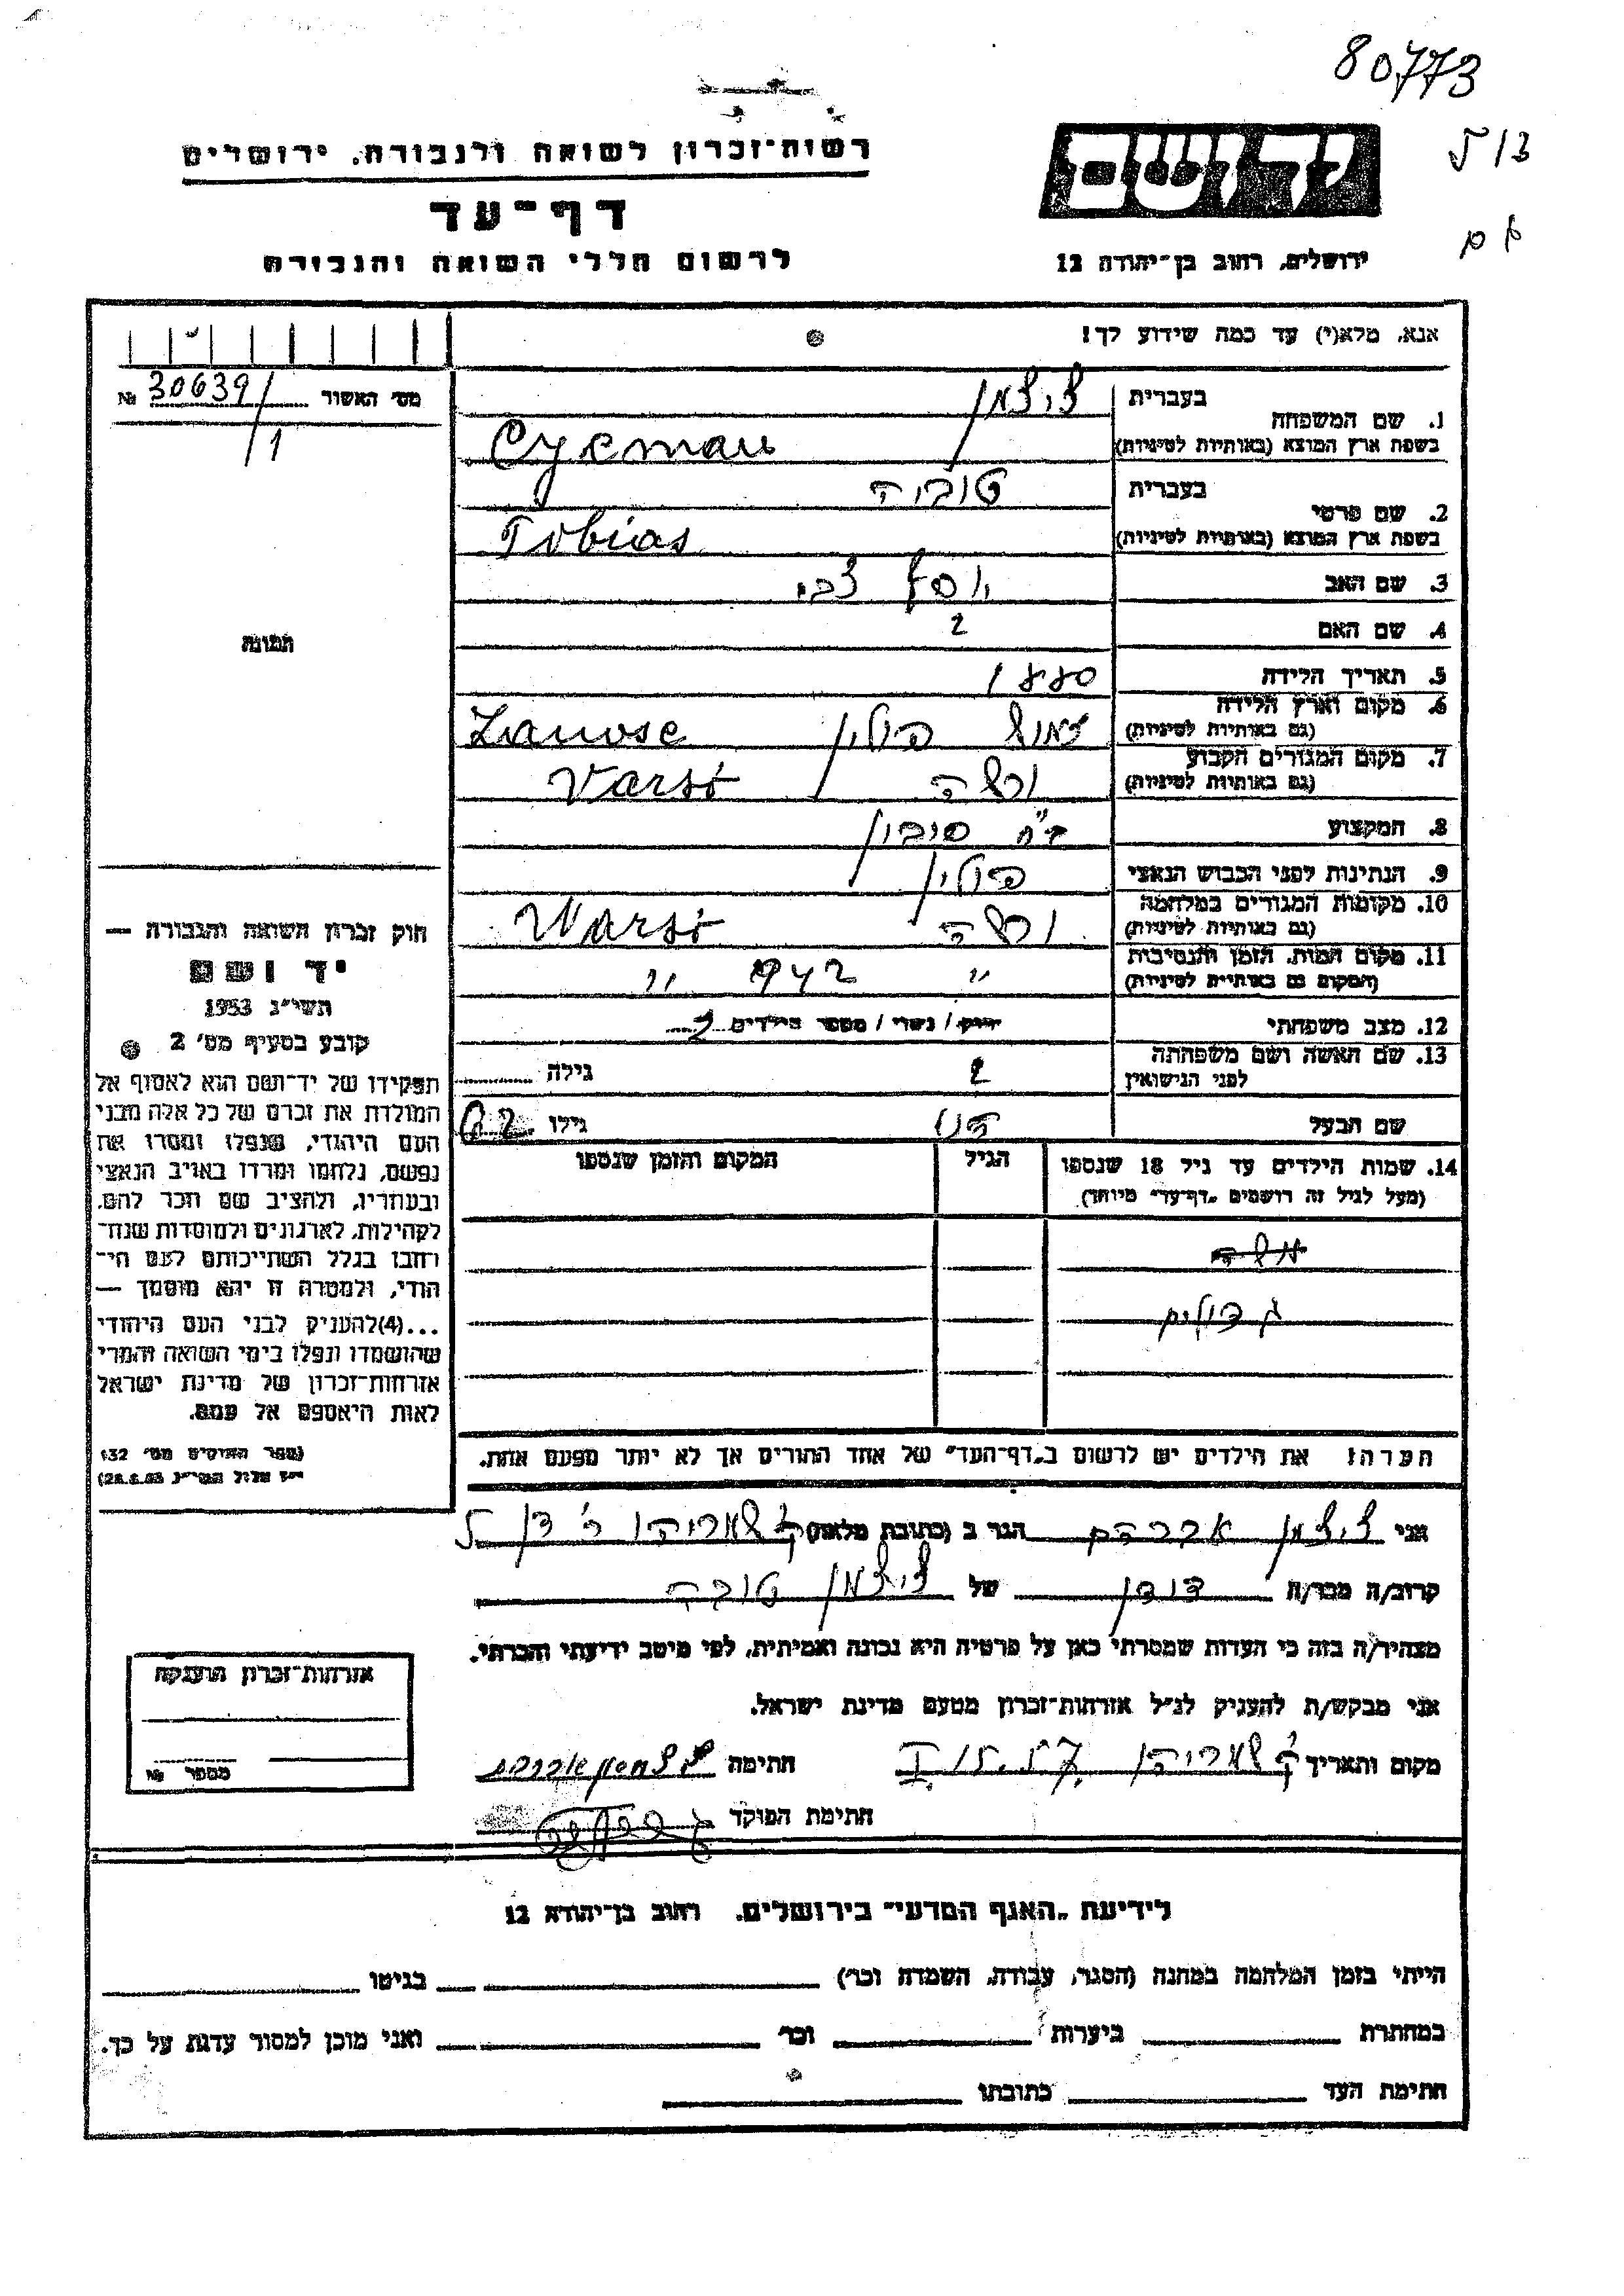 80773
רשות-זכרון לשואה ולגבורה, ירושלים
יד ושם
דף-עד
לרשום חללי השואה והגבורה
ירושלים, רחוב בן-יהודה 12
אנא, מלא(י) עד כמה שידוע לך!
מס׳ האשור № 30639/1
1. שם המשפחה
בעברית ציצמן
בשפת ארץ המוצא (באותיות לטיניות) Cycman
2. שם פרטי
בעברית טוביה
בשפת ארץ המוצא (באותיות לטיניות) Tobias
3. שם האב יוסף צבי
4. שם האם ?
5. תאריך הלידה 1880
6. מקום וארץ הלידה
(גם באותיות לטיניות) פולין
7. מקום המגורים הקבוע
(גם באותיות לטיניות) ורשה Varsó
8. המקצוע בי״ח סבון
9. הנתינות לפני הכבוש הנאצי פולין
10. מקומות המגורים במלחמה
(גם באותיות לטיניות) ורשה Warsó
11. מקום המות, הזמן והנסיבות
(המקום גם באותיות לטיניות) ״ 942 ״
12. מצב משפחתי רווק / נשוי / מספר הילדים 2
13. שם האשה ושם משפחתה
לפני הנישואין ? גילה
שם הבעל הנ״ל גילו 62
14. שמות הילדים עד גיל 18 שנספו הגיל המקום והזמן שנספו
(מעל לגיל זה רושמים „דף-עד״ מיוחד).
גדולים
הערה: את הילדים יש לרשום ב„דף-העד״ של אחד ההורים אך לא יותר מפעם אחת.
תמונה
חוק זכרון השואה והגבורה —
יד ושם
תשי״ג 1953
קובע בסעיף מס׳ 2
תפקידו של יד-ושם הוא לאסוף אל
המולדת את זכרם של כל אלה מבני
העם היהודי, שנפלו ומסרו את
נפשם, נלחמו ומרדו באויב הנאצי
ובעוזריו, ולהציב שם וזכר להם,
לקהילות, לארגונים ולמוסדות שנח-
רבו בגלל השתייכותם לעם הי-
הודי, ולמטרה זו יהא מוסמך —
...(4) להעניק לבני העם היהודי
שהושמדו ונפלו בימי השואה והמרי
אזרחות-זכרון של מדינת ישראל
לאות היאספם אל עמם.
(ספר החוקים מס׳ 132
י״ז אלול תשי״ג 28.8.53)
אני ציצמן אברהם הגר ב (כתובת מלאה) ק׳ שמריהו
קרוב/ה מכר/ה דודן של ציצמן טוביה
מצהיר/ה בזה כי העדות שמסרתי כאן על פרטיה היא נכונה ואמיתית, לפי מיטב ידיעתי והכרתי.
אני מבקש/ת להעניק לנ״ל אזרחות-זכרון מטעם מדינת ישראל.
מקום ותאריך ק׳ שמריהו חתימה ציצמן אברהם
חתימת הפוקד
אזרחות-זכרון הוענקה
מספר №
לידיעת „האגף המדעי״ בירושלים, רחוב בן-יהודה 12
הייתי בזמן המלחמה במחנה (הסגר, עבודה, השמדה וכו׳) בגיטו
במחתרת ביערות וכו׳ ואני מוכן למסור עדות על כך.
חתימת העד כתובתו